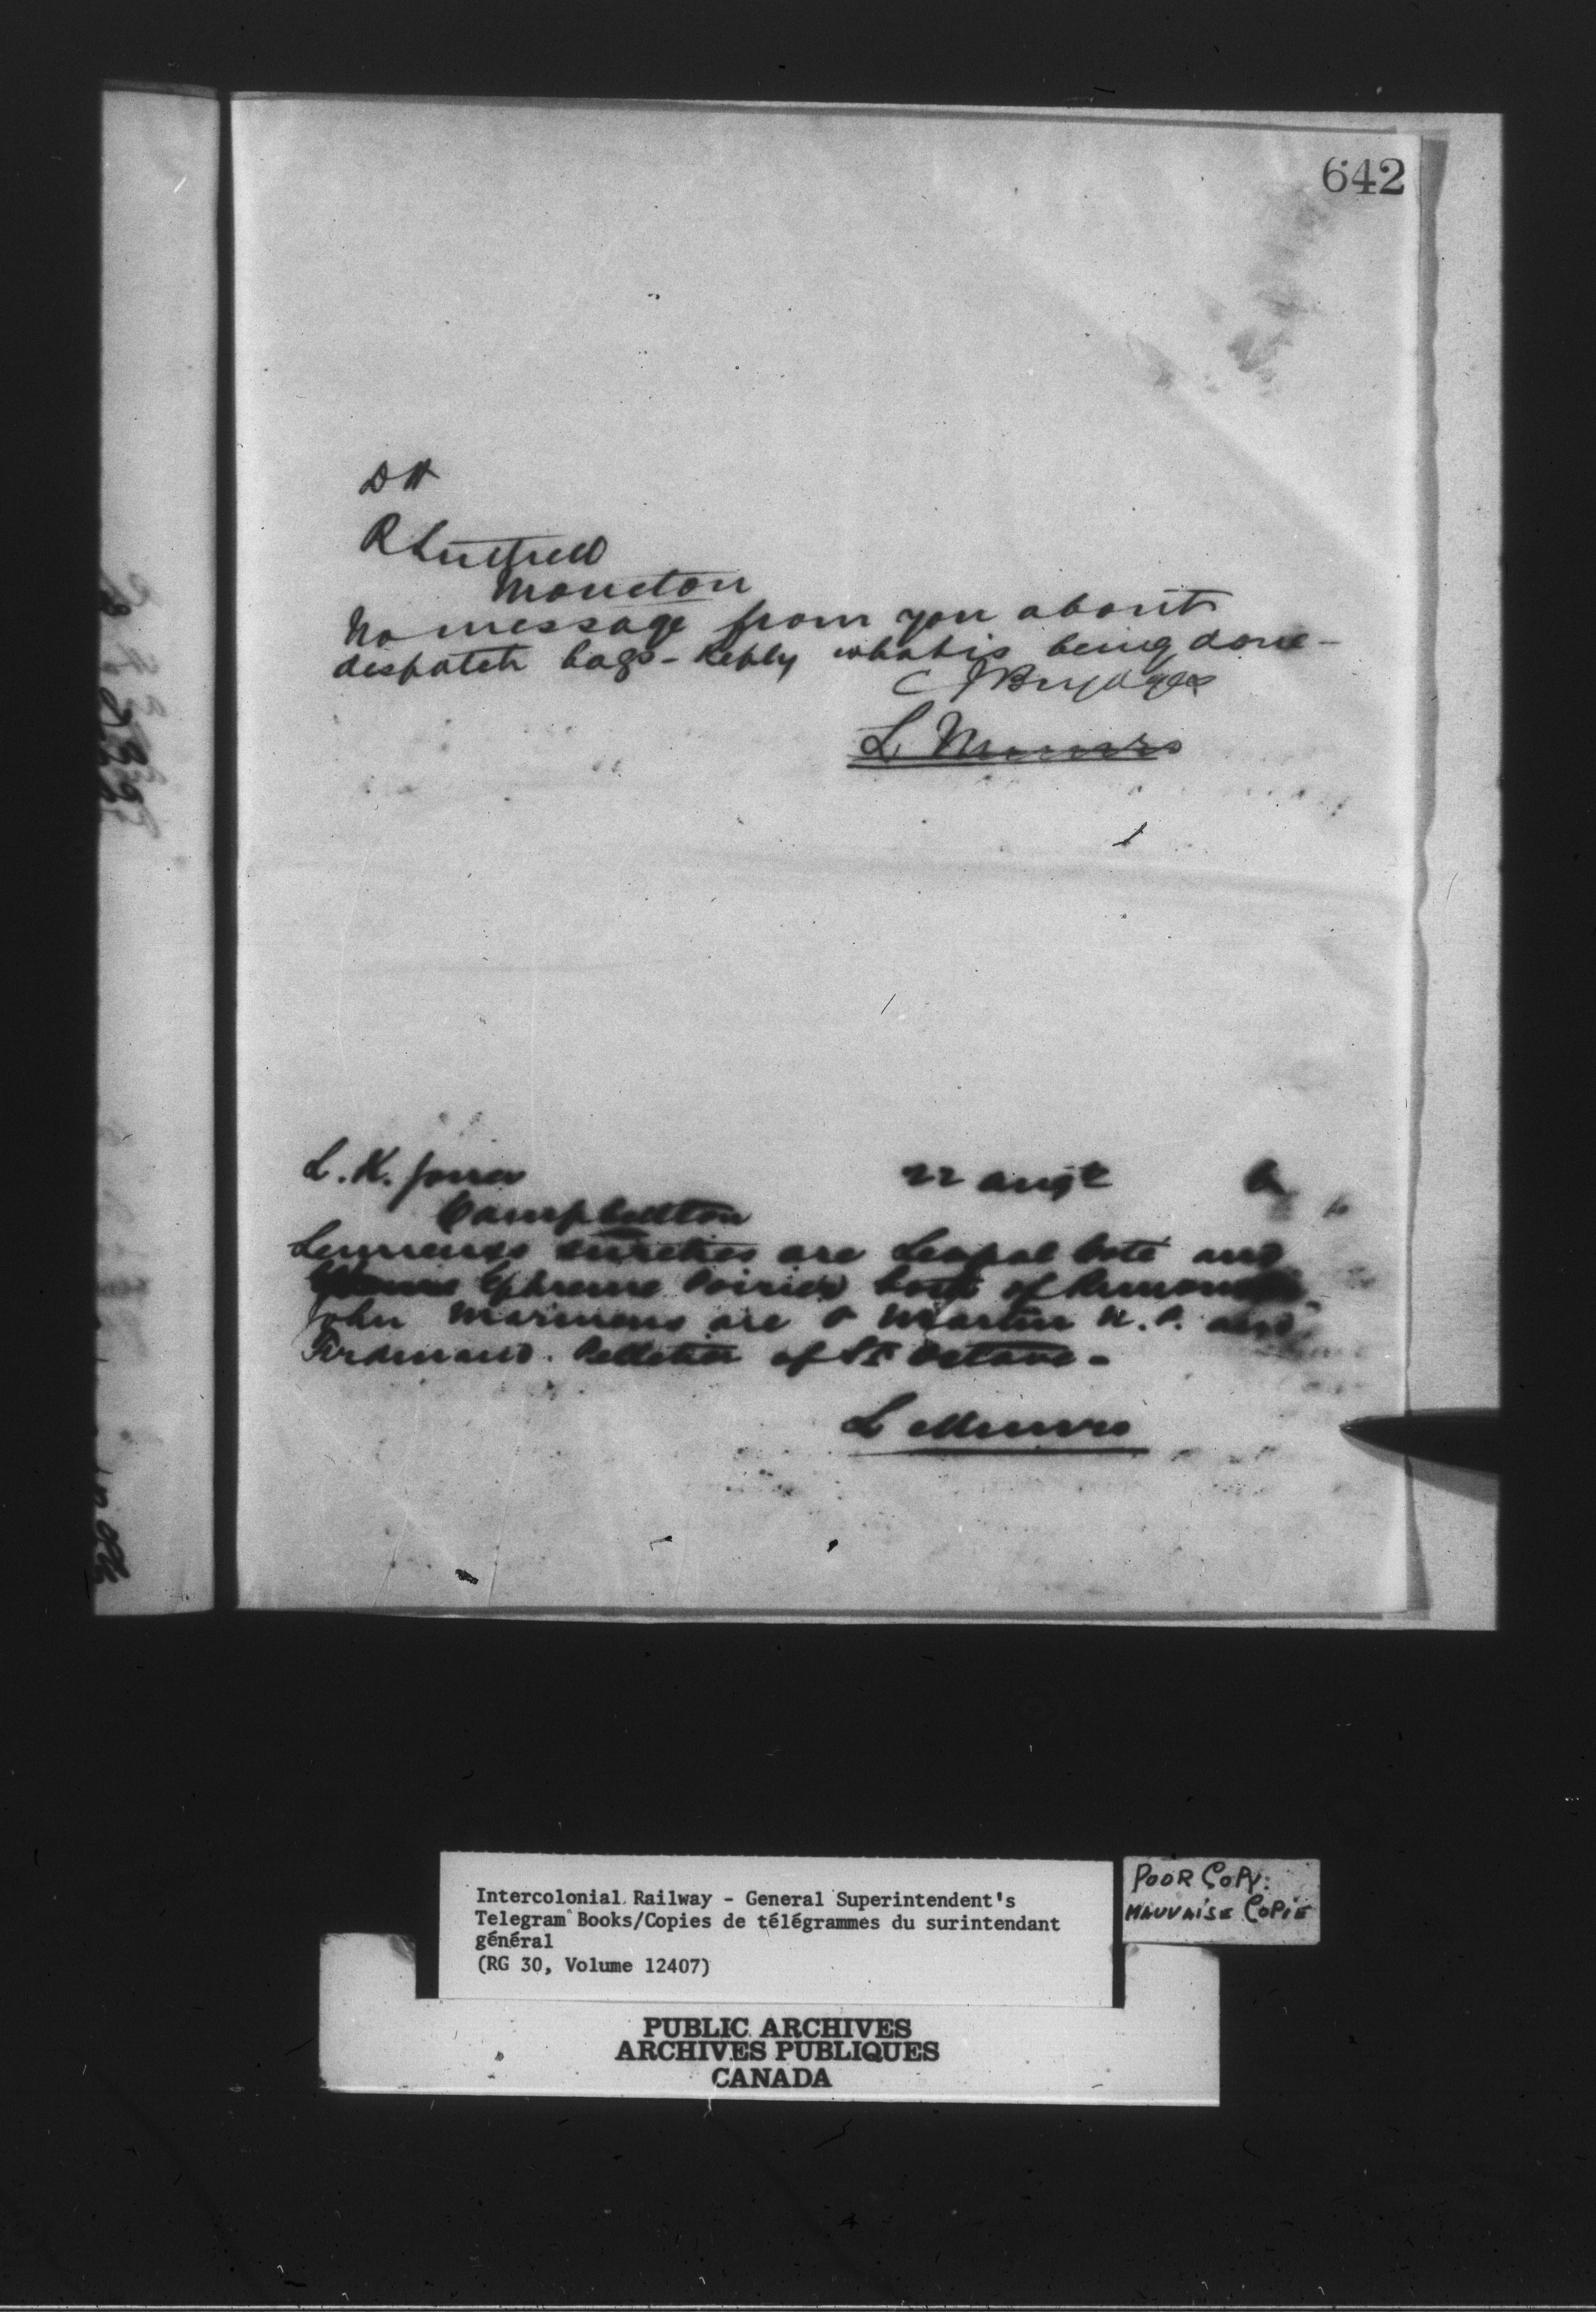 642
D H
R Luttrell
Moncton
No message from you about
despatch bags - Reply what is being done -
C J Brydges
L. Munro
L. K. Jones
22 Augt
Campbellton
sureties are Leopal Coté and
Ephreme Poirier both of
John are O Martin N. P. and
Ferdinand Pelletier of St Octave -
L Munro
Intercolonial Railway - General Superintendent's
Telegram Books/Copies de télégrammes du surintendant
général
(RG 30, Volume 12407)
POOR COPY.
MAUVAISE COPIE
PUBLIC ARCHIVES
ARCHIVES PUBLIQUES
CANADA